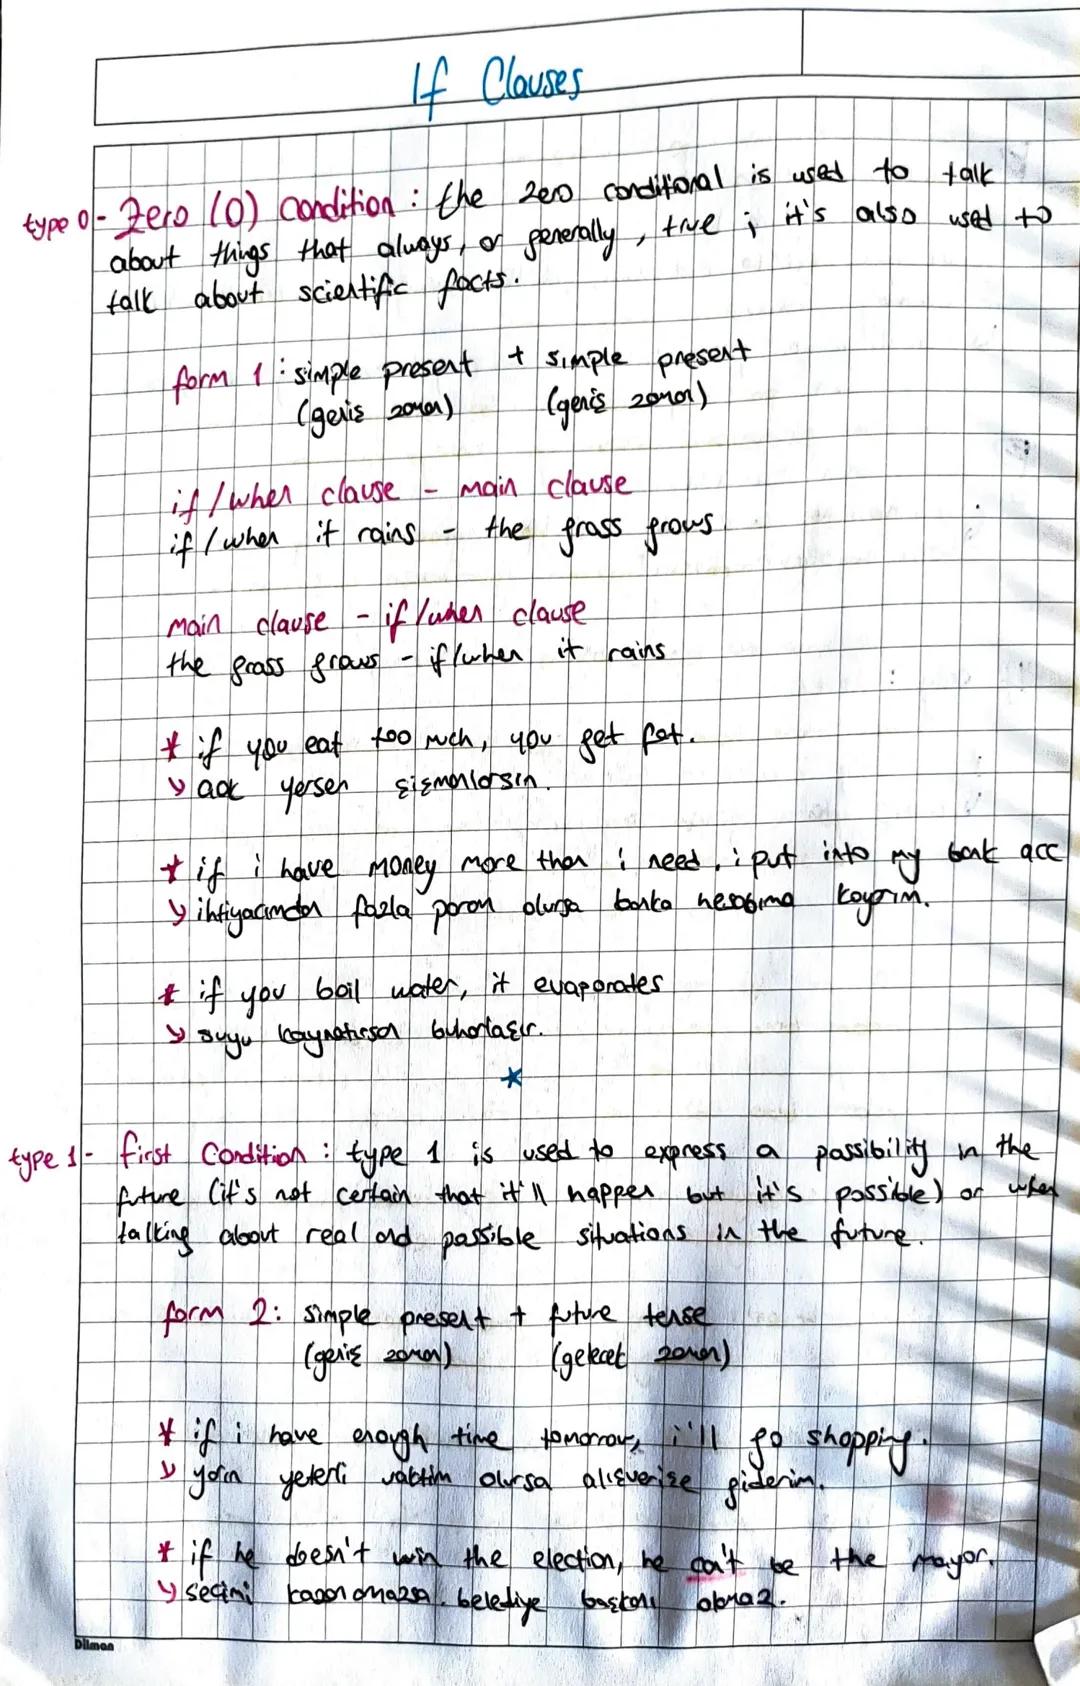 If Clauses
type 0- Zero (0) Condition : the zero conditional is used to talk
about things that always, or generally, true ; it's also used to
talk about scientific facts.
form 1 : simple present + simple present
(geniş zaman) (geniş zaman)
if / when clause - main clause
if / when it rains - the grass grows
main clause - if / when clause
the grass grows - if/when it rains
* if you eat too much, you get fat.
yersen şişmanlarsın.
* if i have money more than i need, i put into my bank acc
ihtiyacımdan fazla param olursa banka hesabıma koyarım.
* if you boil water, it evaporates
suyu kaynatırsan buharlaşır.
*
type 1- first Condition : type 1 is used to express a possibility in the
future (it's not certain that it'll happen but it's possible) or when
talking about real and possible situations in the future.
form 2: simple present + future tense
(geniş zaman) (gelecek zaman)
* if i have enough time tomorrow, i'll go shopping.
yarın yeterli vaktim olursa alışverişe giderim.
* if he doesn't win the election, he can't be the mayor.
seçimi kazanamazsa, belediye başkanı olamaz.
Dilman